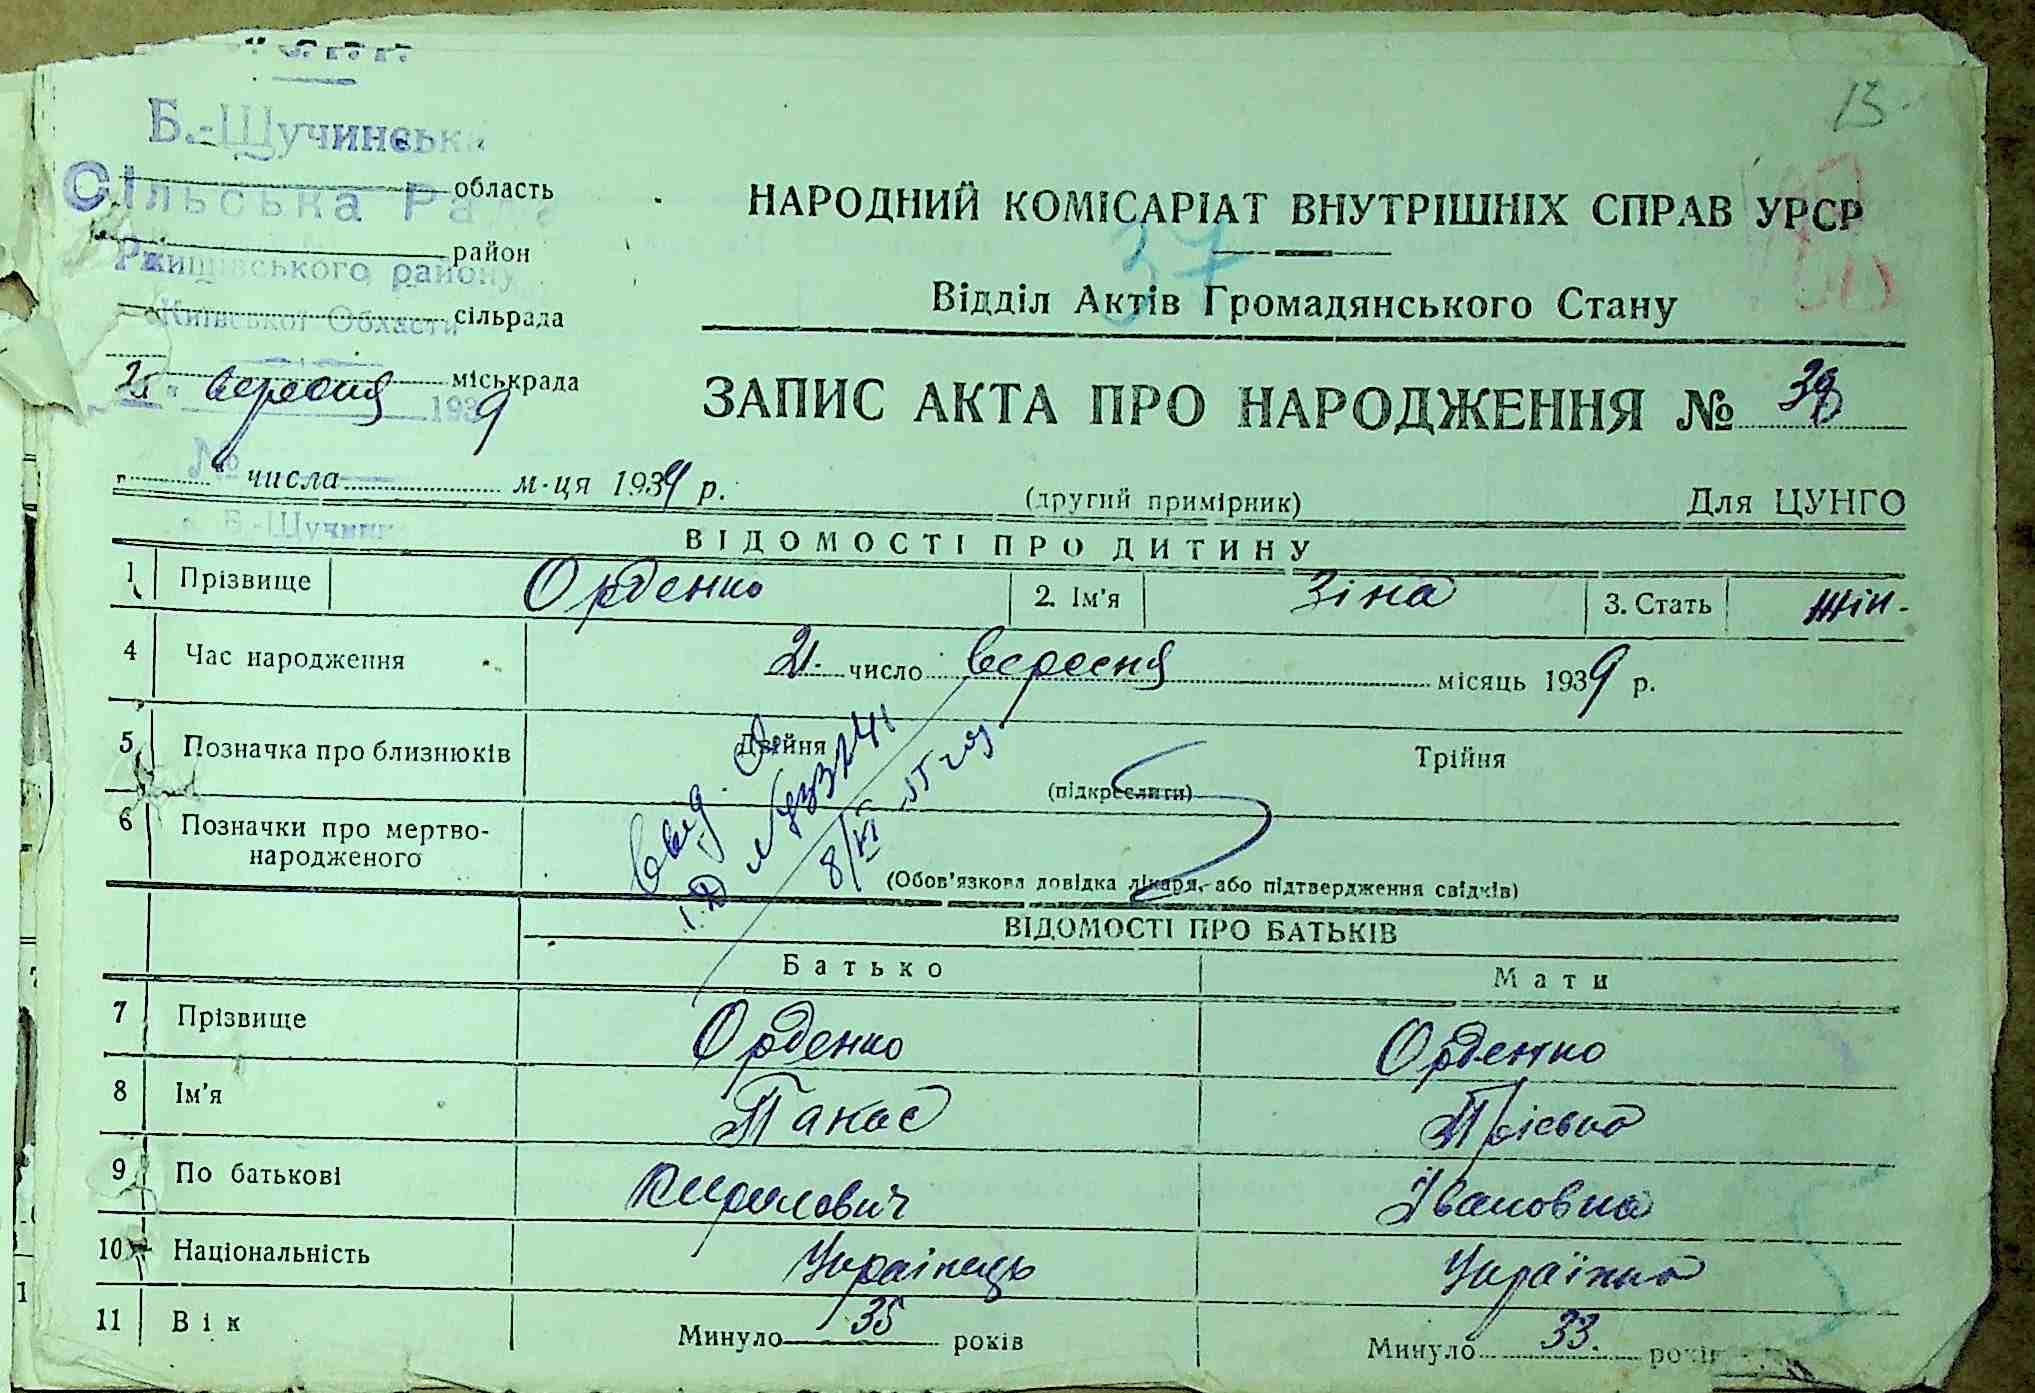 13
Б.-Щучинська
Сільська Рада
область
район
Ржищівського району
Київської Області
сільрада
міськрада
вересня 1939
№
числа м-ця 1939 р.
Б.-Щучин
НАРОДНИЙ КОМІСАРІАТ ВНУТРІШНІХ СПРАВ УРСР
37
Відділ Актів Громадянського Стану
ЗАПИС АКТА ПРО НАРОДЖЕННЯ № 38
(другий примірник) Для ЦУНГО
ВІДОМОСТІ ПРО ДИТИНУ
1 Прізвище Орденко 2. Ім'я Зіна 3. Стать жін.
4 Час народження 21. число вересня місяць 1939 р.
5 Позначка про близнюків Двійня Трійня
(підкреслити)
6 Позначки про мертво-
народженого
(Обов'язкова довідка лікаря, або підтвердження свідків)
8/VI 55 год
ВІДОМОСТІ ПРО БАТЬКІВ
Батько Мати
7 Прізвище Орденко Орденко
8 Ім'я Панас
9 По батькові Кирилович Івановна
10 Національність Українець Українка
11 Вік Минуло 35 років Минуло 33. років